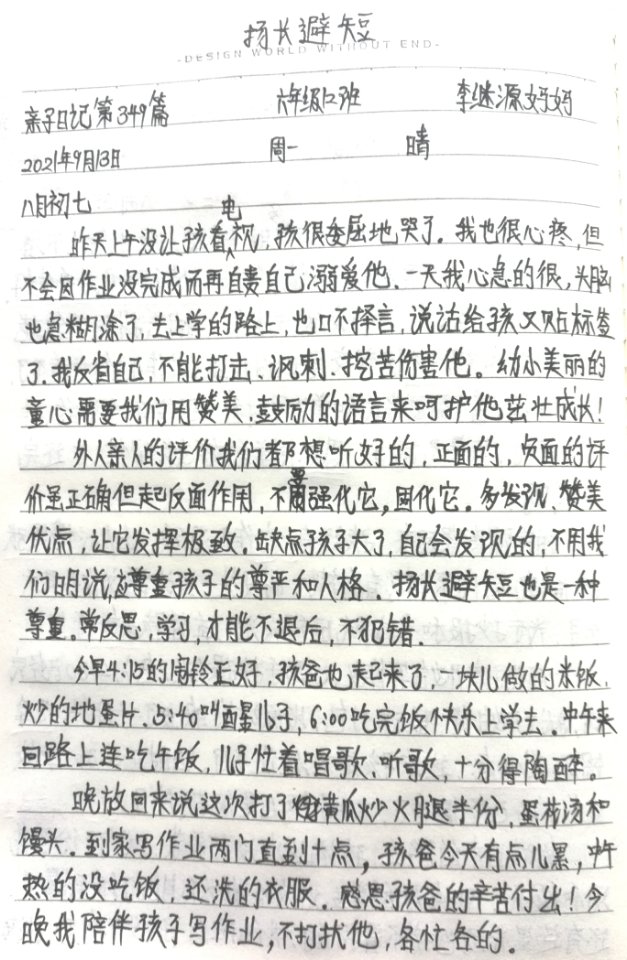 扬长避短
-DESIGN WORLD WITHOUT END-
亲子日记第349篇 六年级12班 李继源妈妈
2021年9月13日 周一 晴
八月初七
昨天上午没让孩看电视,孩很委屈地哭了。我也很心疼,但
不会因作业没完成而再自责自己溺爱他。一天我心急的很,头脑
也急糊涂了,去上学的路上,也口不择言,说话给孩又贴标签
了。我反省自己,不能打击、讽刺、挖苦伤害他。幼小美丽的
童心需要我们用赞美、鼓励的语言来呵护他茁壮成长!
外人亲人的评价我们都想听好的,正面的,负面的评
价虽正确但起反面作用,不要强化它,固化它。多发现、赞美
优点,让它发挥极致。缺点孩子大了,自己会发现的,不用我
们明说,应尊重孩子的尊严和人格。扬长避短也是一种
尊重。常反思,学习,才能不退后,不犯错.
今早4:15的闹铃正好,孩爸也起来了,一块儿做的米饭.
炒的地蛋片.5:40叫醒儿子,6:00吃完饭快乐上学去.中午来
回路上连吃午饭,儿子忙着唱歌、听歌,十分得陶醉。
晚放回来说这次打了黄瓜炒火腿半份,蛋花汤和
馒头.到家写作业两门直到十点,孩爸今天有点儿累,中午
热的没吃饭,还洗的衣服.感恩孩爸的辛苦付出!今
晚我陪伴孩子写作业,不打扰他,各忙各的.